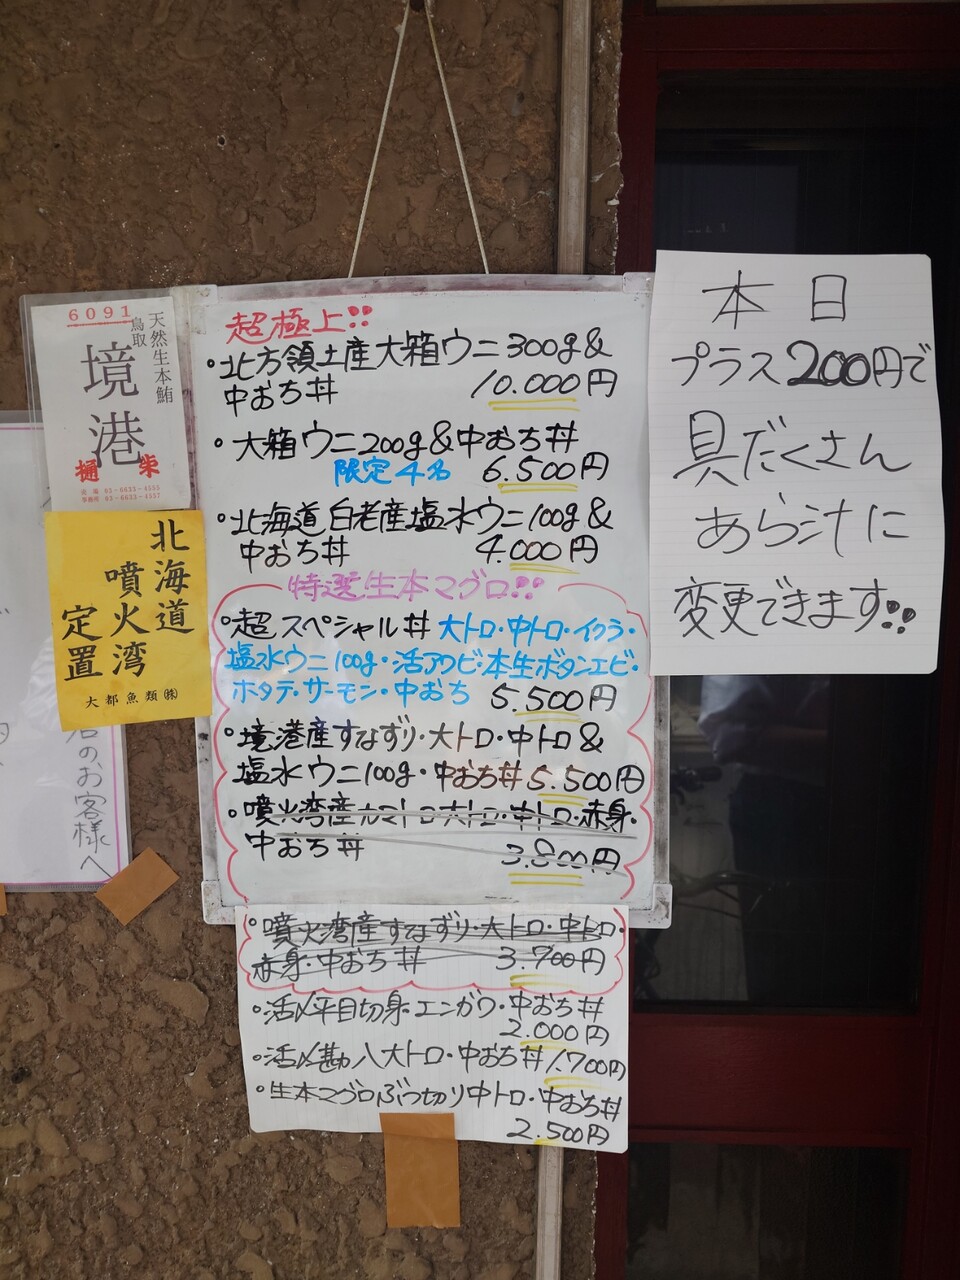 6091
天然生本鮪
鳥取
境港
樋栄
北海道
噴火湾
定置
大都魚類㈱
名のお客様へ
超極上!!
・北方領土産大箱ウニ300g&
中おち丼 10.000円
・大箱ウニ200g&中おち丼
限定4名 6.500円
・北海道白老産塩水ウニ100g&
中おち丼 4.000円
特選生本マグロ!!
・超スペシャル丼 大トロ・中トロ・イクラ・
塩水ウニ100g・活アワビ・本生ボタンエビ・
ホタテ・サーモン・中おち 5.500円
・境港産すなずり・大トロ・中トロ&
塩水ウニ100g・中おち丼 5.500円
・噴火湾産カマトロ大トロ・中トロ・赤身・
中おち丼 3.800円
・噴火湾産すなずり・大トロ・中トロ・
赤身・中おち丼 3.700円
・活〆平目切身エンガワ・中おち丼
2.000円
・活〆勘八大トロ・中おち丼1.700円
・生本マグロぶつ切り中トロ・中おち丼
2.500円
本日
プラス200円で
具だくさん
あら汁に
変更できます!!